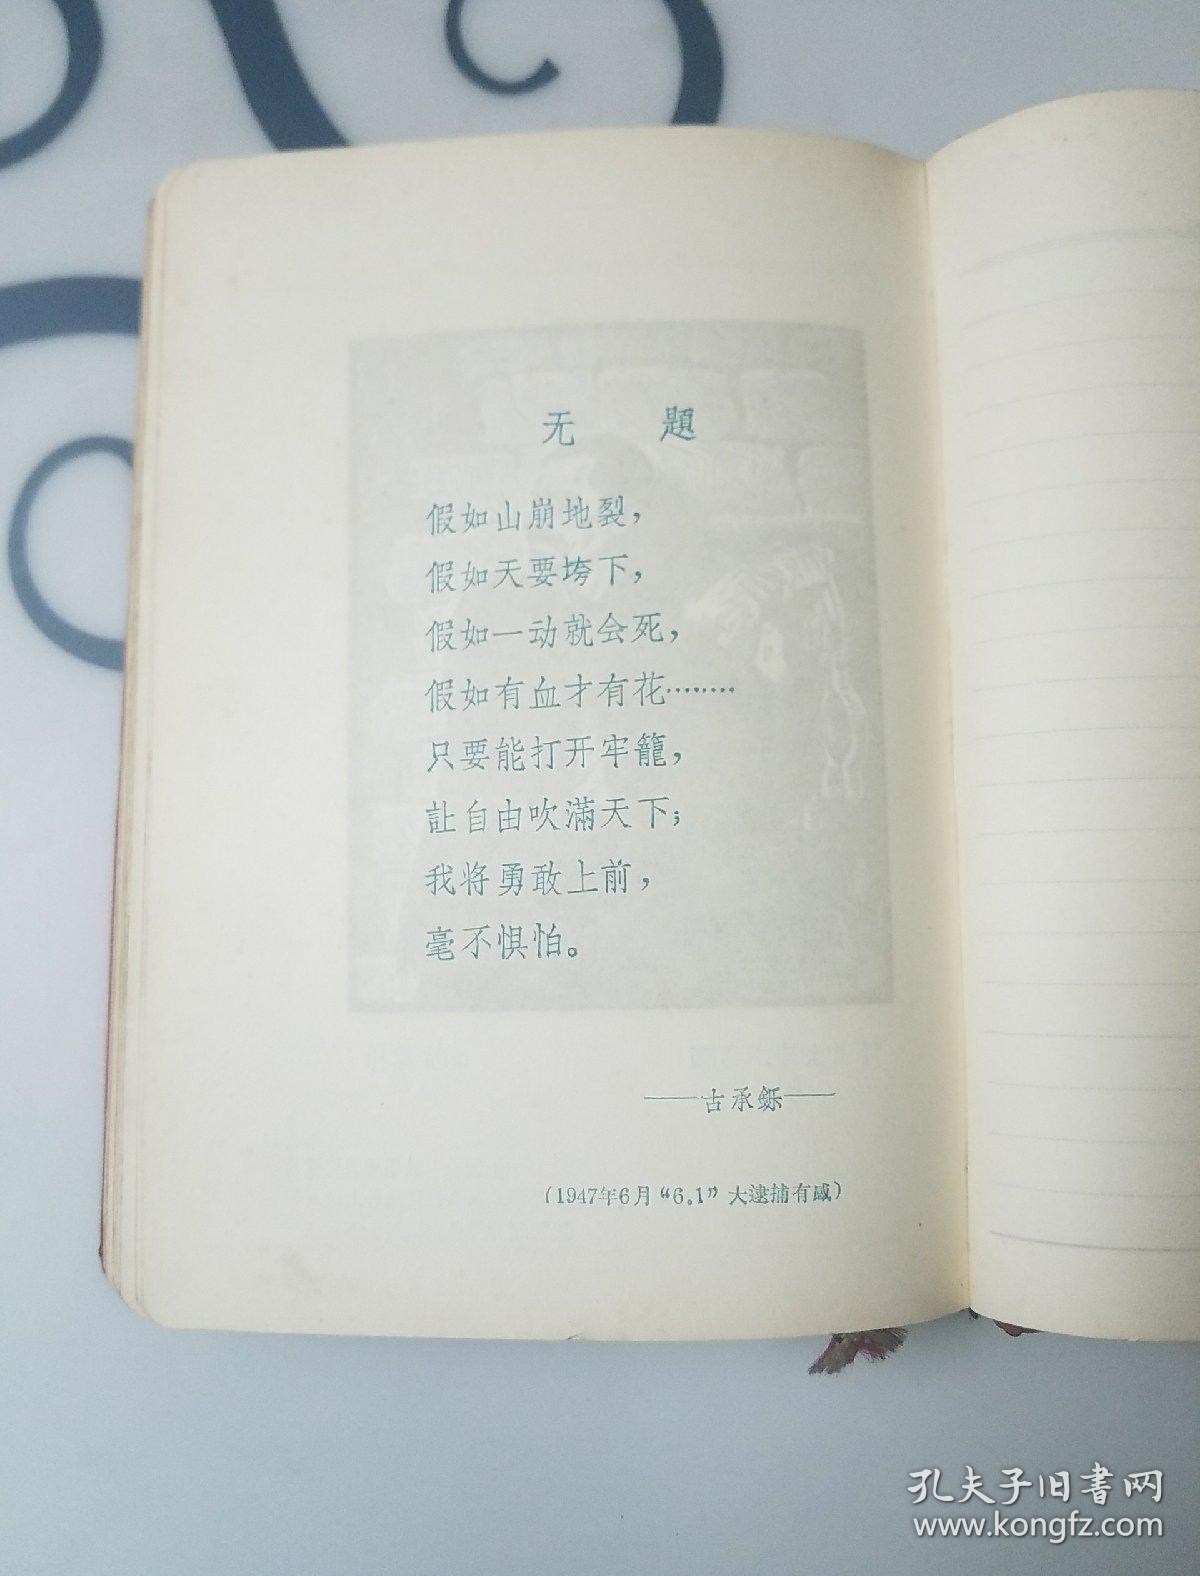 无 題
假如山崩地裂，
假如天要垮下，
假如一动就会死，
假如有血才有花········
只要能打开牢籠，
訨自由吹滿天下；
我将勇敢上前，
毫不惧怕。
——古承鑠——
（1947年6月“6.1”大逮捕有感）
孔夫子旧书网
www.kongfz.com